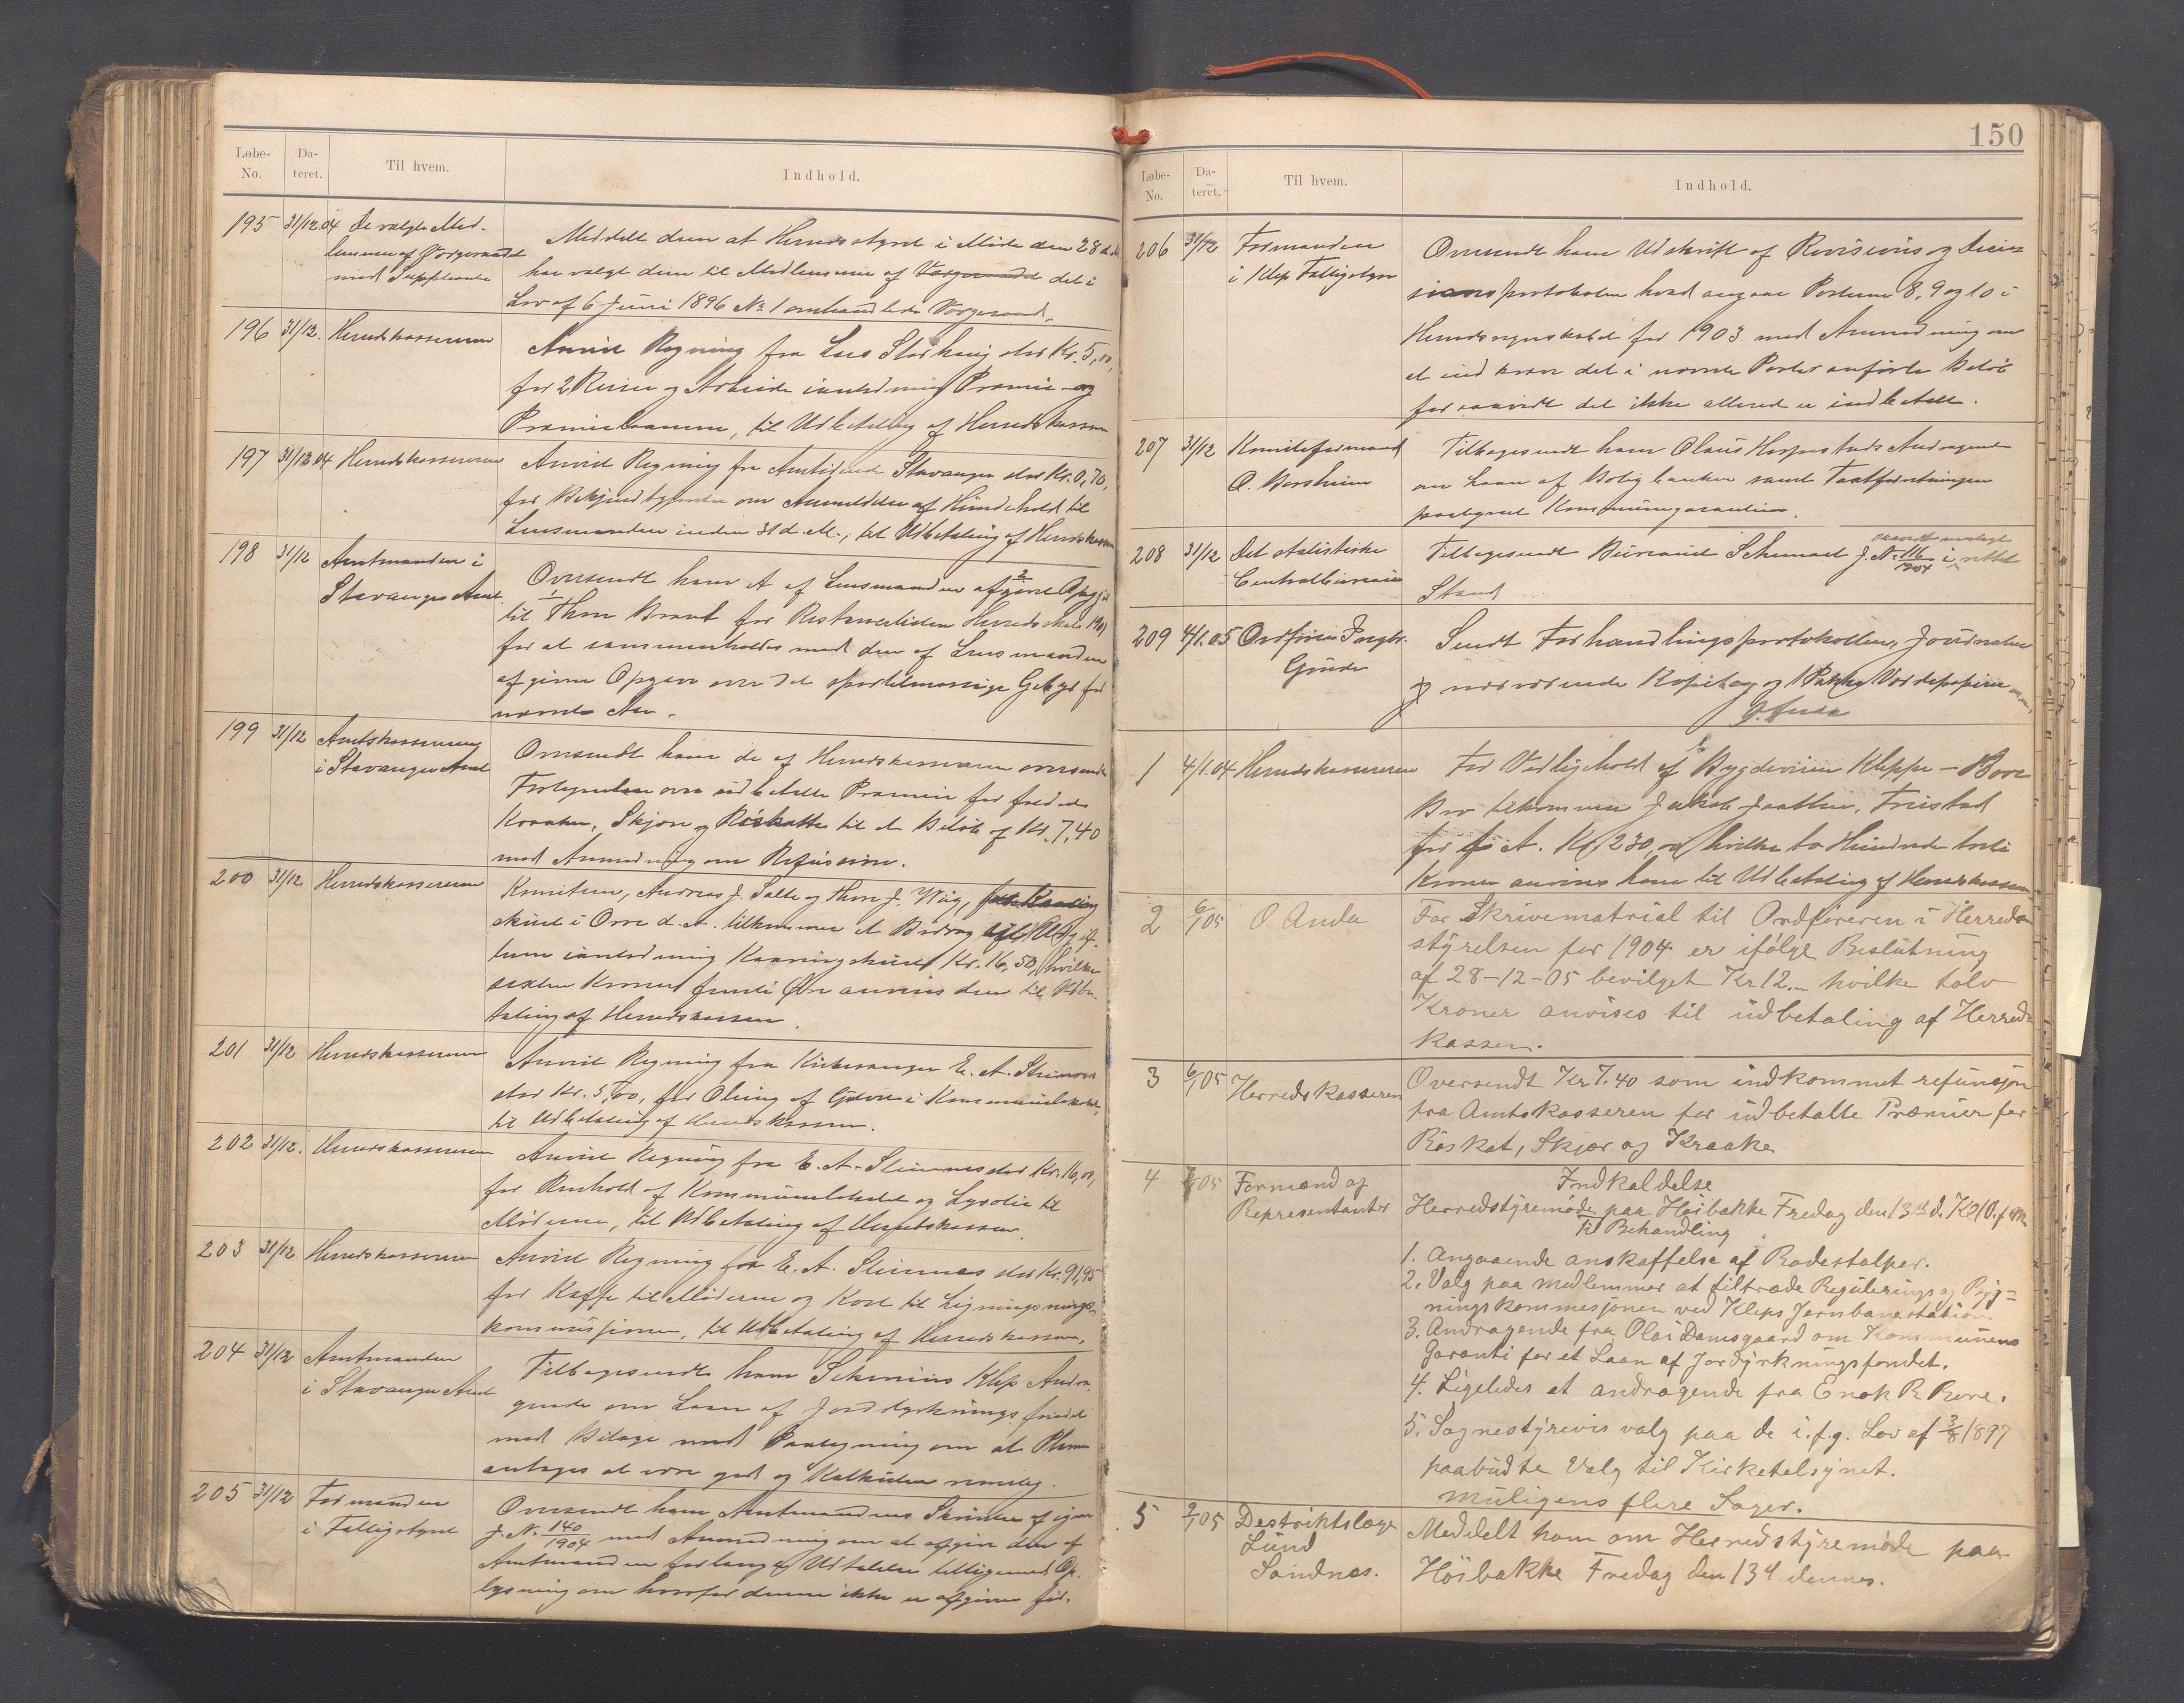 Løbe-No. Da-teret. Til hvem. Indhold.
195 31/12 04 De valgte Med-
lemmer af Vergeraadet
med Supplanter
Meddelt dem at Herredsstyret i Møde den 28 d.M.
har valgt dem til Medlemmer af Vergeraadet det i
Lov af 6 Juni 1896 No 1 omhandlede Vergeraad.
196 31/12. Herredskassereren
Anvist Regning fra Lars Storhaug stor Kr. 5,00,
for 2 Reiser og Arbeide
til Udbetaling af Herredskassen
197 31/12 04 Herredskassereren
Anvist Regning fra Amtstidende Stavanger stor Kr. 0,70,
for Bekjendtgjørelse om Anmeldelse af Hundehold til
Lensmanden inden 31 d.M., til Udbetaling af Herredskassen
198 31/12 Amtmanden i
Stavanger Amt.
Oversendt ham et af Lensmanden afgivet
til Thore Braut for
for at sammenholdes med den af Lensmanden
afgivne Opgave over det sportelmæssige Gebyr for
nævnte Aar.
199 31/12 Amtskassereren
i Stavanger Amt
Oversendt ham de af Herredskassereren oversendte
Fortegnelser over udbetalte Præmier for fældede
Kraaker, Skjærer og Røiskatte til et Beløb af Kr. 7,40
med Anmodning om Refusion.
200 31/12 Herredskassereren
Komiteen, Andreas J. Salte og Thore J. Wiig,
skuet i Orre d.A. tilkommer et Bidrag
Kaaringskuet Kr. 16,50, hvilke
sexten Kroner femti Øre anvises dem til Udbe-
taling af Herredskassen.
201 31/12 Herredskassereren
Anvist Regning fra Kirkesanger E. A. Steinnes
stor Kr. 5,00, for Oling af Gulvet i Kommunelokalet,
til Udbetaling af Herredskassen.
202 31/12. Herredskassereren
Anvist Regning fra E. A. Steinnes stor Kr. 16,00,
for Renhold af Kommunelokalet og Lysolie til
Møderne, til Udbetaling af Herredskassen.
203 31/12 Herredskassereren
Anvist Regning fra E. A. Steinnes stor Kr. 91,95
for Kaffe til Møderne og Kost til Ligningsnings-
kommissionen, til Udbetaling af Herredskassen,
204 31/12 Amtmanden
i Stavanger Amt
Tilbagesendt ham Klep Andra-
gende om Laan af Jorddyrkningsfondet
med Bilage med Paategning om at Planen
antages at være god og Kalkulen rimelig.
205 31/12 Formanden
i Fattigstyret
Oversendt ham Amtmandens Skrivelse af
J. No. 140/1904 med Anmodning om at afgive den af
Amtmanden forlangte Udtalelse tilligemed Op-
lysning om hvorfor denne ikke er afgiven før.
150
Løbe-No. Da-teret. Til hvem. Indhold.
206 31/12 Formanden
i Klep Fattigstyre
Oversendt ham Udskrift af Revisions og Deci-
sionsprotokolen hvad angaar Posterne 8, 9 og 10 i
Herredsregnskabet for 1903 med Anmodning om
at indkræve det i nævnte Poster anførte Beløb
forsaavidt det ikke allerede er indbetalt.
207 31/12 Komiteformand
O. Borsheim
Tilbagesendt ham Olaus Hospestads Andragende
om Laan af Boligbanken samt Taxtforretningen
paategnet Kommunegarantien.
208 31/12 Det statistiske
Centralbureau
Tilbagesendt Bureauet Schemaet J. No 116/1904 i rettet
Stand
209 4/1.05 Ordfører Ingbr.
Grude
Sendt Forhandlingsprotokollen, Journalen
og nærværende Kopibog og 1 Pakke Værdipapirer
1 4/1.04 Herredskassereren
For Vedligehold af Bygdeveien Kleppe - Bore
Bro tilkommer Jakob Jaatten, Friestad
for f. A. Kr 230,00 hvilke to Hundrede treti
Kroner anvises ham til Udbetaling af Herredskassen
2 6/1 05 O Anda
For Skrivematrial til Ordføreren i Herreds
styrelsen for 1904 er ifølge Beslutning
af 28-12-05 bevilget Kr 12.- hvilke tolv
Kroner anvises til udbetaling af Herreds
kassen.
3 6/1 05 Herredskasseren
Oversendt Kr 7.40 som indkommet refunsjon
fra Amtskasseren for udbetalte Præmier for
Röskat, Skjær og Kraake
4 7/1 05 Formænd og
Representanter
Indkaldelse
Herredstyremøde paa Høibakke Fredag den 13de d. Kl 10. f m
Til Behandling
1. Angaaende anskaffelse af Rodestolper.
2. Valg paa medlemmer at tiltræde Regulerings og Byg=
ningskommesjonen ved Kleps Jernbanestation
3. Andragende fra Olai Damsgaard om Kommunens
Garanti for et Laan af Jordyrkningsfondet.
4. Ligeledes et andragende fra Enok R Bore.
5. Sognestyrevis valg paa de i.f.g. Lov af 3/8 1897
paabudte Valg til Kirketelsynet.
Muligens flere Sager.
5 9/1 05 Destriktslæge
Lund
Sandnæs.
Meddelt ham om Herredstyremøde paa
Höibakke Fredag den 13d. dennes.